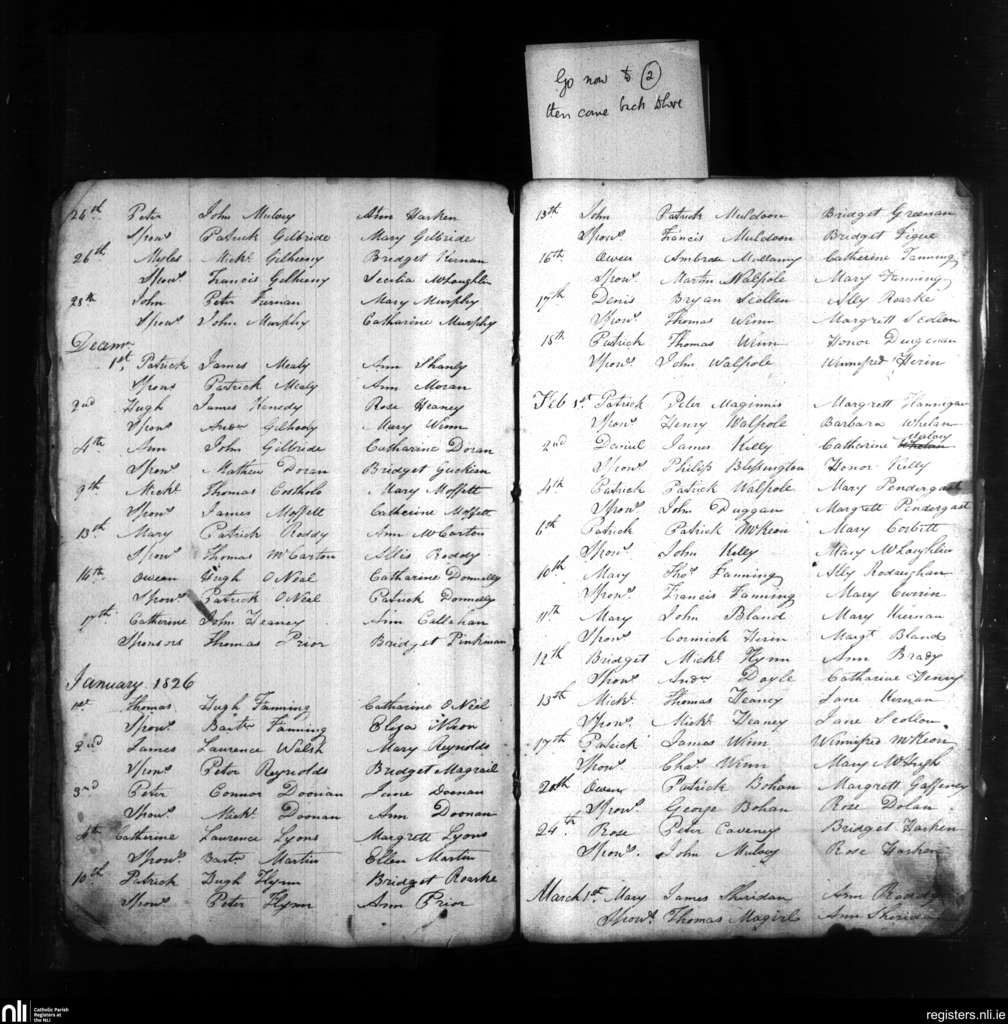 Go now to 2
then come back where
24th Peter John Mulvey Ann Harken
Spons Patrick Gilbride Mary Gilbride
26th Myles Michl Gilheeny Bridget Kernan
Spons Francis Gilheeny Cecilia McLoughlin
28th John Peter Furnan Mary Murphy
Spons John Murphy Catharine Murphy
Decemr
1st Patrick James Mealy Ann Shanly
Spons Patrick Mealy Ann Moran
2nd Hugh James Kenedy Rose Heaney
Spons Andw Gilhooly Mary Winn
4th Ann John Gilbride Catharine Doran
Spons Mathew Doran Bridget Guckian
9th Michl Thomas Costholo Mary Moffett
Spons James Moffett Catherine Moffett
13th Mary Patrick Roddy Ann McCarton
Spons Thomas McCarton Allis Roddy
14th Owean Hugh ONeal Catharine Donnelly
Spons Patrick ONeal Patrick Donnelly
17th Catherine John Heaney Ann Callahan
Sponsors Thomas Prior Bridget Pinkman
January 1826
1st Thomas Hugh Fanning Catharine ONeal
Spons Baxter Fanning Eliza Nixon
2nd James Laurence Walsh Mary Reynolds
Spons Peter Reynolds Bridget Magrail
3rd Peter Connor Doonan Jane Doonan
Spons Michl Doonan Ann Doonan
4th Catherine Laurence Lyons Margrett Lyons
Spons Baxter Martin Ellen Martin
10th Patrick Hugh Flynn Bridget Roarke
Spons Peter Flynn Ann Prior
13th John Patrick Muldoon Bridget Greenan
Spons Francis Muldoon Bridget Figue
16th Owen Ambrose Mullaney Catherine Fanning
Spons Martin Walpole Mary Fanning
17th Denis Bryan Scollen Ally Roarke
Spons Thomas Winn Margrett Scollon
18th Patrick Thomas Winn Honor Duigenan
Spons John Walpole Winnifred Herin
Feb 1st Patrick Peter Maginnis Margrett Hannigan
Spons Henry Walpole Barbara Whelan
Malony
2nd Daniel James Kelly Catharine Whelan
Spons Philip Blessington Honor Kelly
4th Patrick Patrick Walpole Mary Pendergast
Spons John Duggan Margrett Pendergast
6th Patrick Patrick McKeon Mary Corbett
Spons John Kelly Mary McLaughlin
10th Mary Thos Fanning Ally Rodaughan
Spons Francis Fanning Mary Currin
11th Mary John Bland Mary Kiernan
Spons Cormick Herin Margt Bland
12th Bridget Michl Flynn Ann Brady
Spons Andw Doyle Catharine Henry
13th Michl Thomas Heaney Jane Kernan
Spons Michl Heaney Jane Scollon
17th Patrick James Winn Winnifred McKeon
Spons Chas Winn Mary McHugh
20th Owen Patrick Bohan Margrett Gaffeney
Spons George Bohan Rose Dolan
24th Rose Peter Caveney Bridget Harken
Spons John Mulvey Rose Harken
March 1st Mary James Sheridan Ann Roddy
Spons Thomas Magirl Ann Sheridan
nli Catholic Parish
Registers at
the NLI
registers.nli.ie